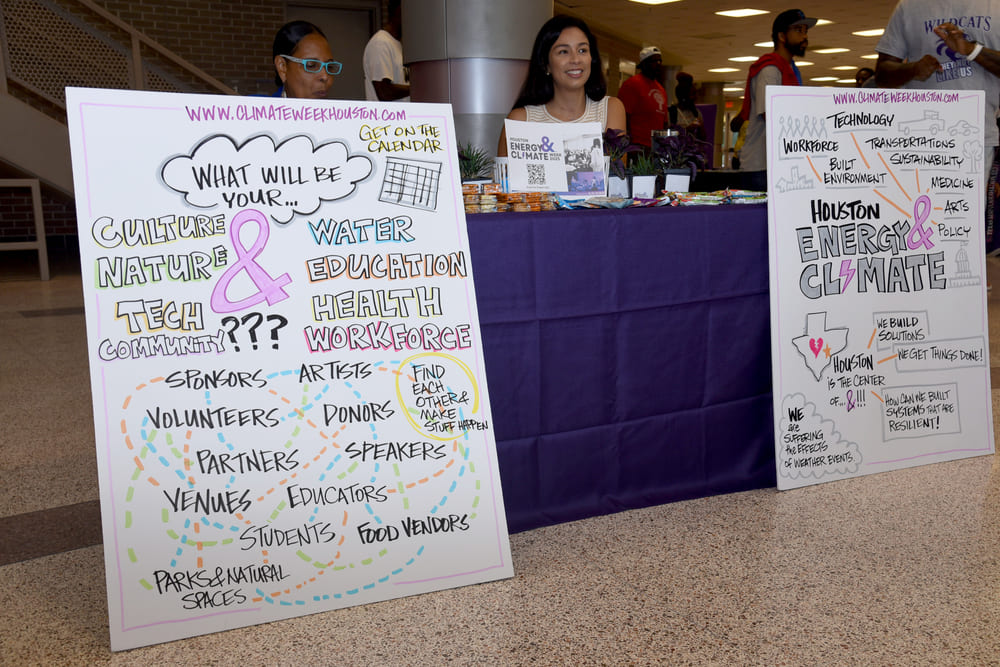 WWW.CLIMATEWEEKHOUSTON.COM
GET ON THE
CALENDAR
WHAT WILL BE
YOUR...
CULTURE
NATURE
TECH
COMMUNITY
&
???
WATER
EDUCATION
HEALTH
WORKFORCE
SPONSORS
ARTISTS
FIND
EACH
OTHER &
MAKE
STUFF HAPPEN
VOLUNTEERS
DONORS
PARTNERS
SPEAKERS
VENUES
EDUCATORS
STUDENTS
FOOD VENDORS
PARKS & NATURAL
SPACES
HOUSTON
ENERGY&
CLIMATE WEEK
2025
WILDCATS
WWW.CLIMATEWEEKHOUSTON.COM
TECHNOLOGY
WORKFORCE
TRANSPORTATIONS
SUSTAINABILITY
BUILT
ENVIRONMENT
MEDICINE
ARTS
POLICY
HOUSTON
ENERGY &
CLIMATE
WE BUILD
SOLUTIONS
WE GET THINGS DONE!
HOUSTON
IS THE CENTER
OF... &!!!
HOW CAN WE BUILT
SYSTEMS THAT ARE
RESILIENT!
WE
are
SUFFERING
the EFFECTS
OF WEATHER EVENTS.